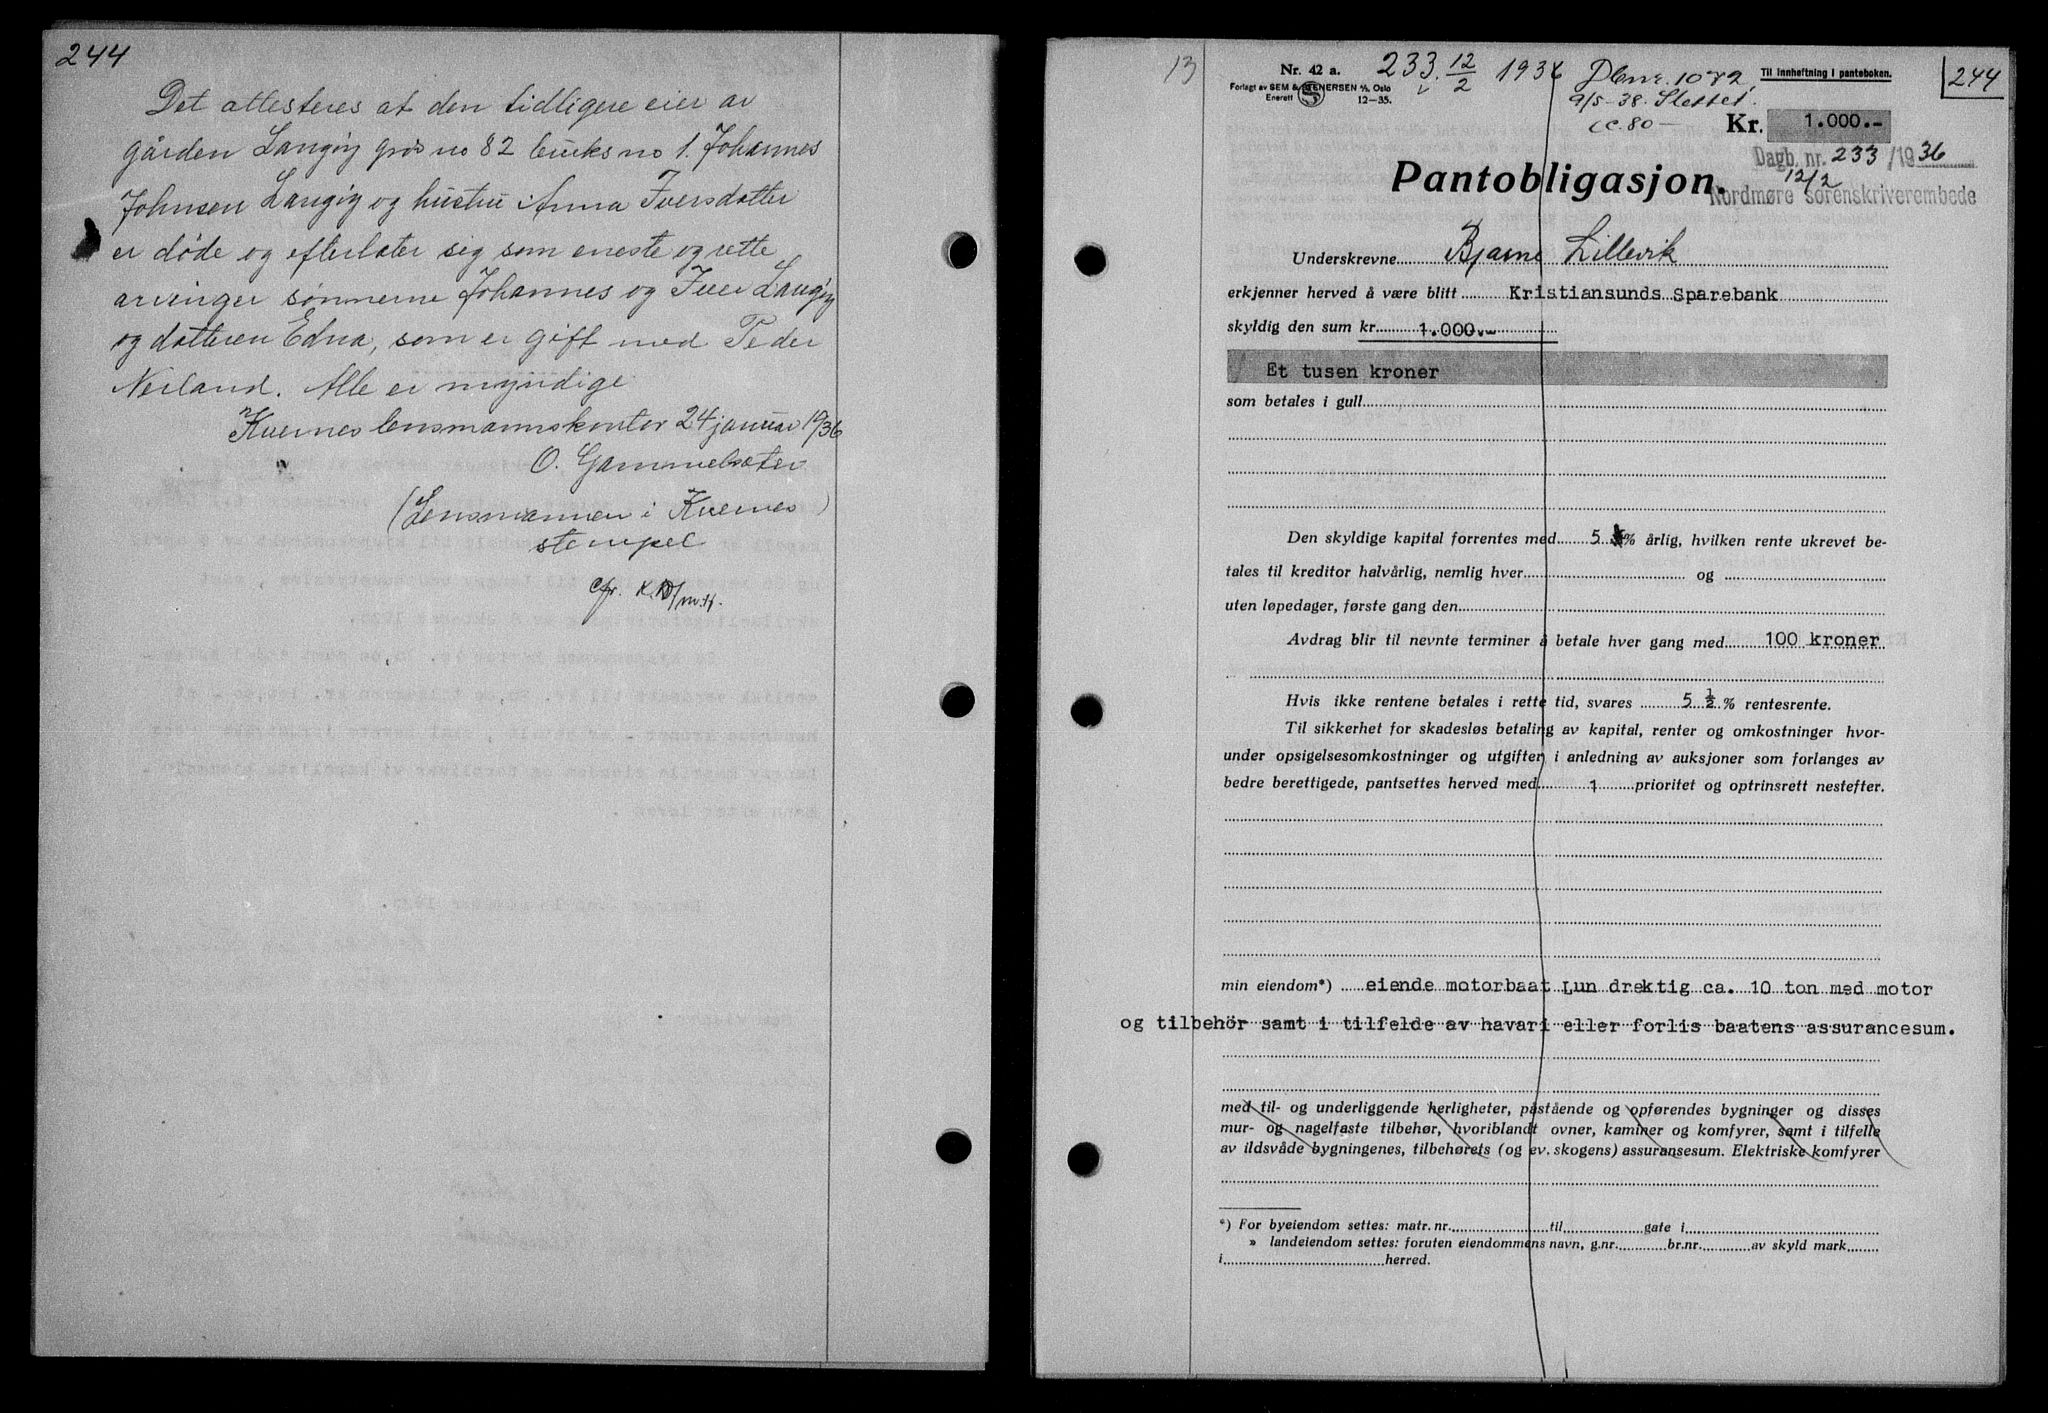 244
Det attesteres at den tidligere eier av
gården Langøy grds no 82 bruks no 1. Johannes
Johnsen Langøy og hustru Anna Iversdatter
er døde og efterlater sig som eneste og rette
arvinger sønnerne Johannes og Iver Langøy
og datteren Edna, som er gift med Peder
Neiland. Alle er myndige
Kvernes lensmannskontor 24 januar 1936
O. Gammelsæter
(Lensmannen i Kvernes)
stempel
Cfr.
13
Nr. 42 a.
Forlagt av SEM & STENERSEN A/S, Oslo
Enerett S 12-35.
233. 12/2 1936
Dbnr. 1072
9/5-38. Slettet.
cc. 80 —
Til innheftning i panteboken.
244
Kr. 1.000.-
Dagb. nr. 233/1936
12/2
Nordmøre sorenskriverembede
Pantobligasjon.
Underskrevne Bjarne Lillevik
erkjenner herved å være blitt Kristiansunds Sparebank
skyldig den sum kr. 1.000.-
Et tusen kroner
som betales i gull
Den skyldige kapital forrentes med 5 % årlig, hvilken rente ukrevet be-
tales til kreditor halvårlig, nemlig hver og
uten løpedager, første gang den
Avdrag blir til nevnte terminer å betale hver gang med 100 kroner
Hvis ikke rentene betales i rette tid, svares 5 ½ % rentesrente.
Til sikkerhet for skadesløs betaling av kapital, renter og omkostninger hvor-
under opsigelsesomkostninger og utgifter i anledning av auksjoner som forlanges av
bedre berettigede, pantsettes herved med 1 prioritet og optrinsrett nestefter.
min eiendom*) eiende motorbaat Lun drektig ca. 10 ton med motor
og tilbehör samt i tilfelde av havari eller forlis baatens assurancesum.
med til- og underliggende herligheter, påstående og opførendes bygninger og disses
mur- og nagelfaste tilbehør, hvoriblandt ovner, kaminer og komfyrer, samt i tilfelle
av ildsvåde bygningenes, tilbehørets (og ev. skogens) assuransesum. Elektriske komfyrer
*) For byeiendom settes: matr. nr. til gate i
» landeiendom settes: foruten eiendommens navn, g.nr. br.nr. av skyld mark
i herred.